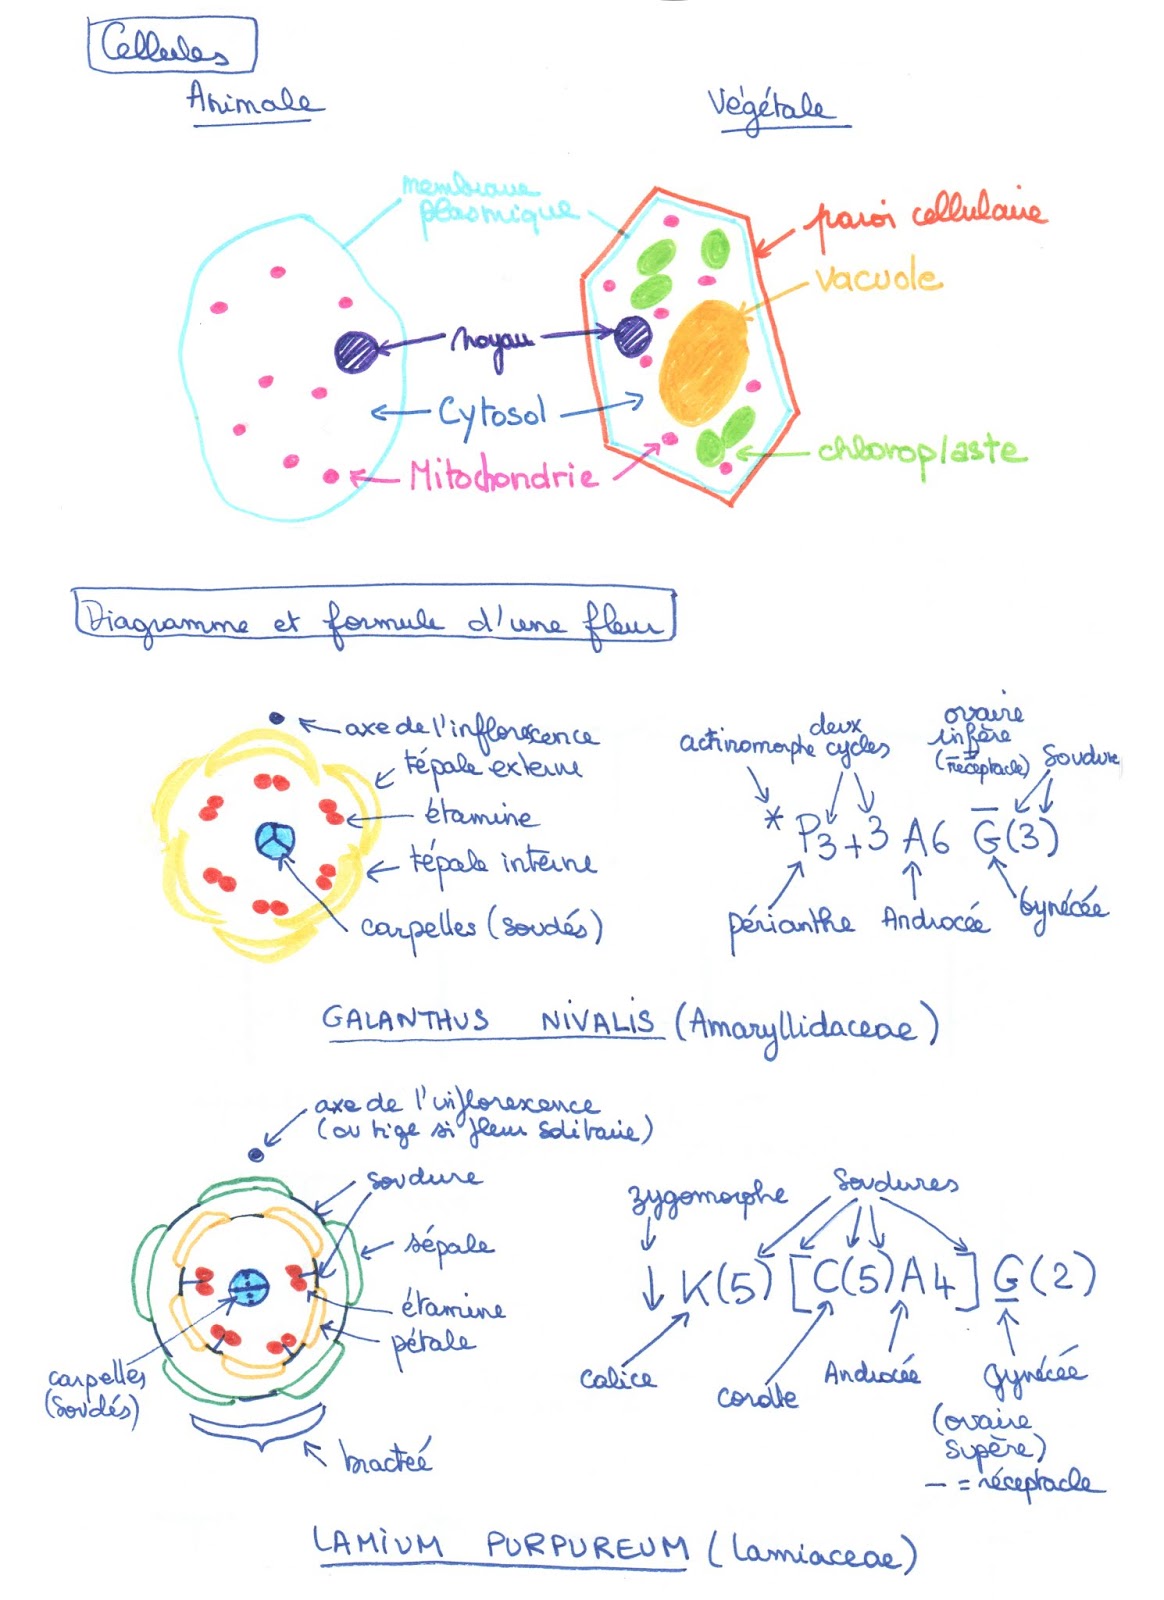 Cellules
Animale
Végétale
membrane
plasmique
paroi cellulaire
vacuole
noyau
Cytosol
chloroplaste
Mitochondrie
Diagramme et formule d'une fleur
axe de l'inflorescence
tépale externe
étamine
tépale interne
carpelles (soudés)
actinomorphe
deux
cycles
ovaire
infère
(— réceptacle)
Soudure
* P3+3 A6 G̅(3)
périanthe
Androcée
Gynécée
GALANTHUS NIVALIS (Amaryllidaceae)
axe de l'inflorescence
(ou tige si fleur solitaire)
soudure
sépale
étamine
pétale
carpelles
(soudés)
bractéé
zygomorphe
Soudures
↓ K(5) [C(5)A4] G̲(2)
calice
corolle
Androcée
Gynécée
(ovaire
supère)
— = réceptacle
LAMIUM PURPUREUM (Lamiaceae)